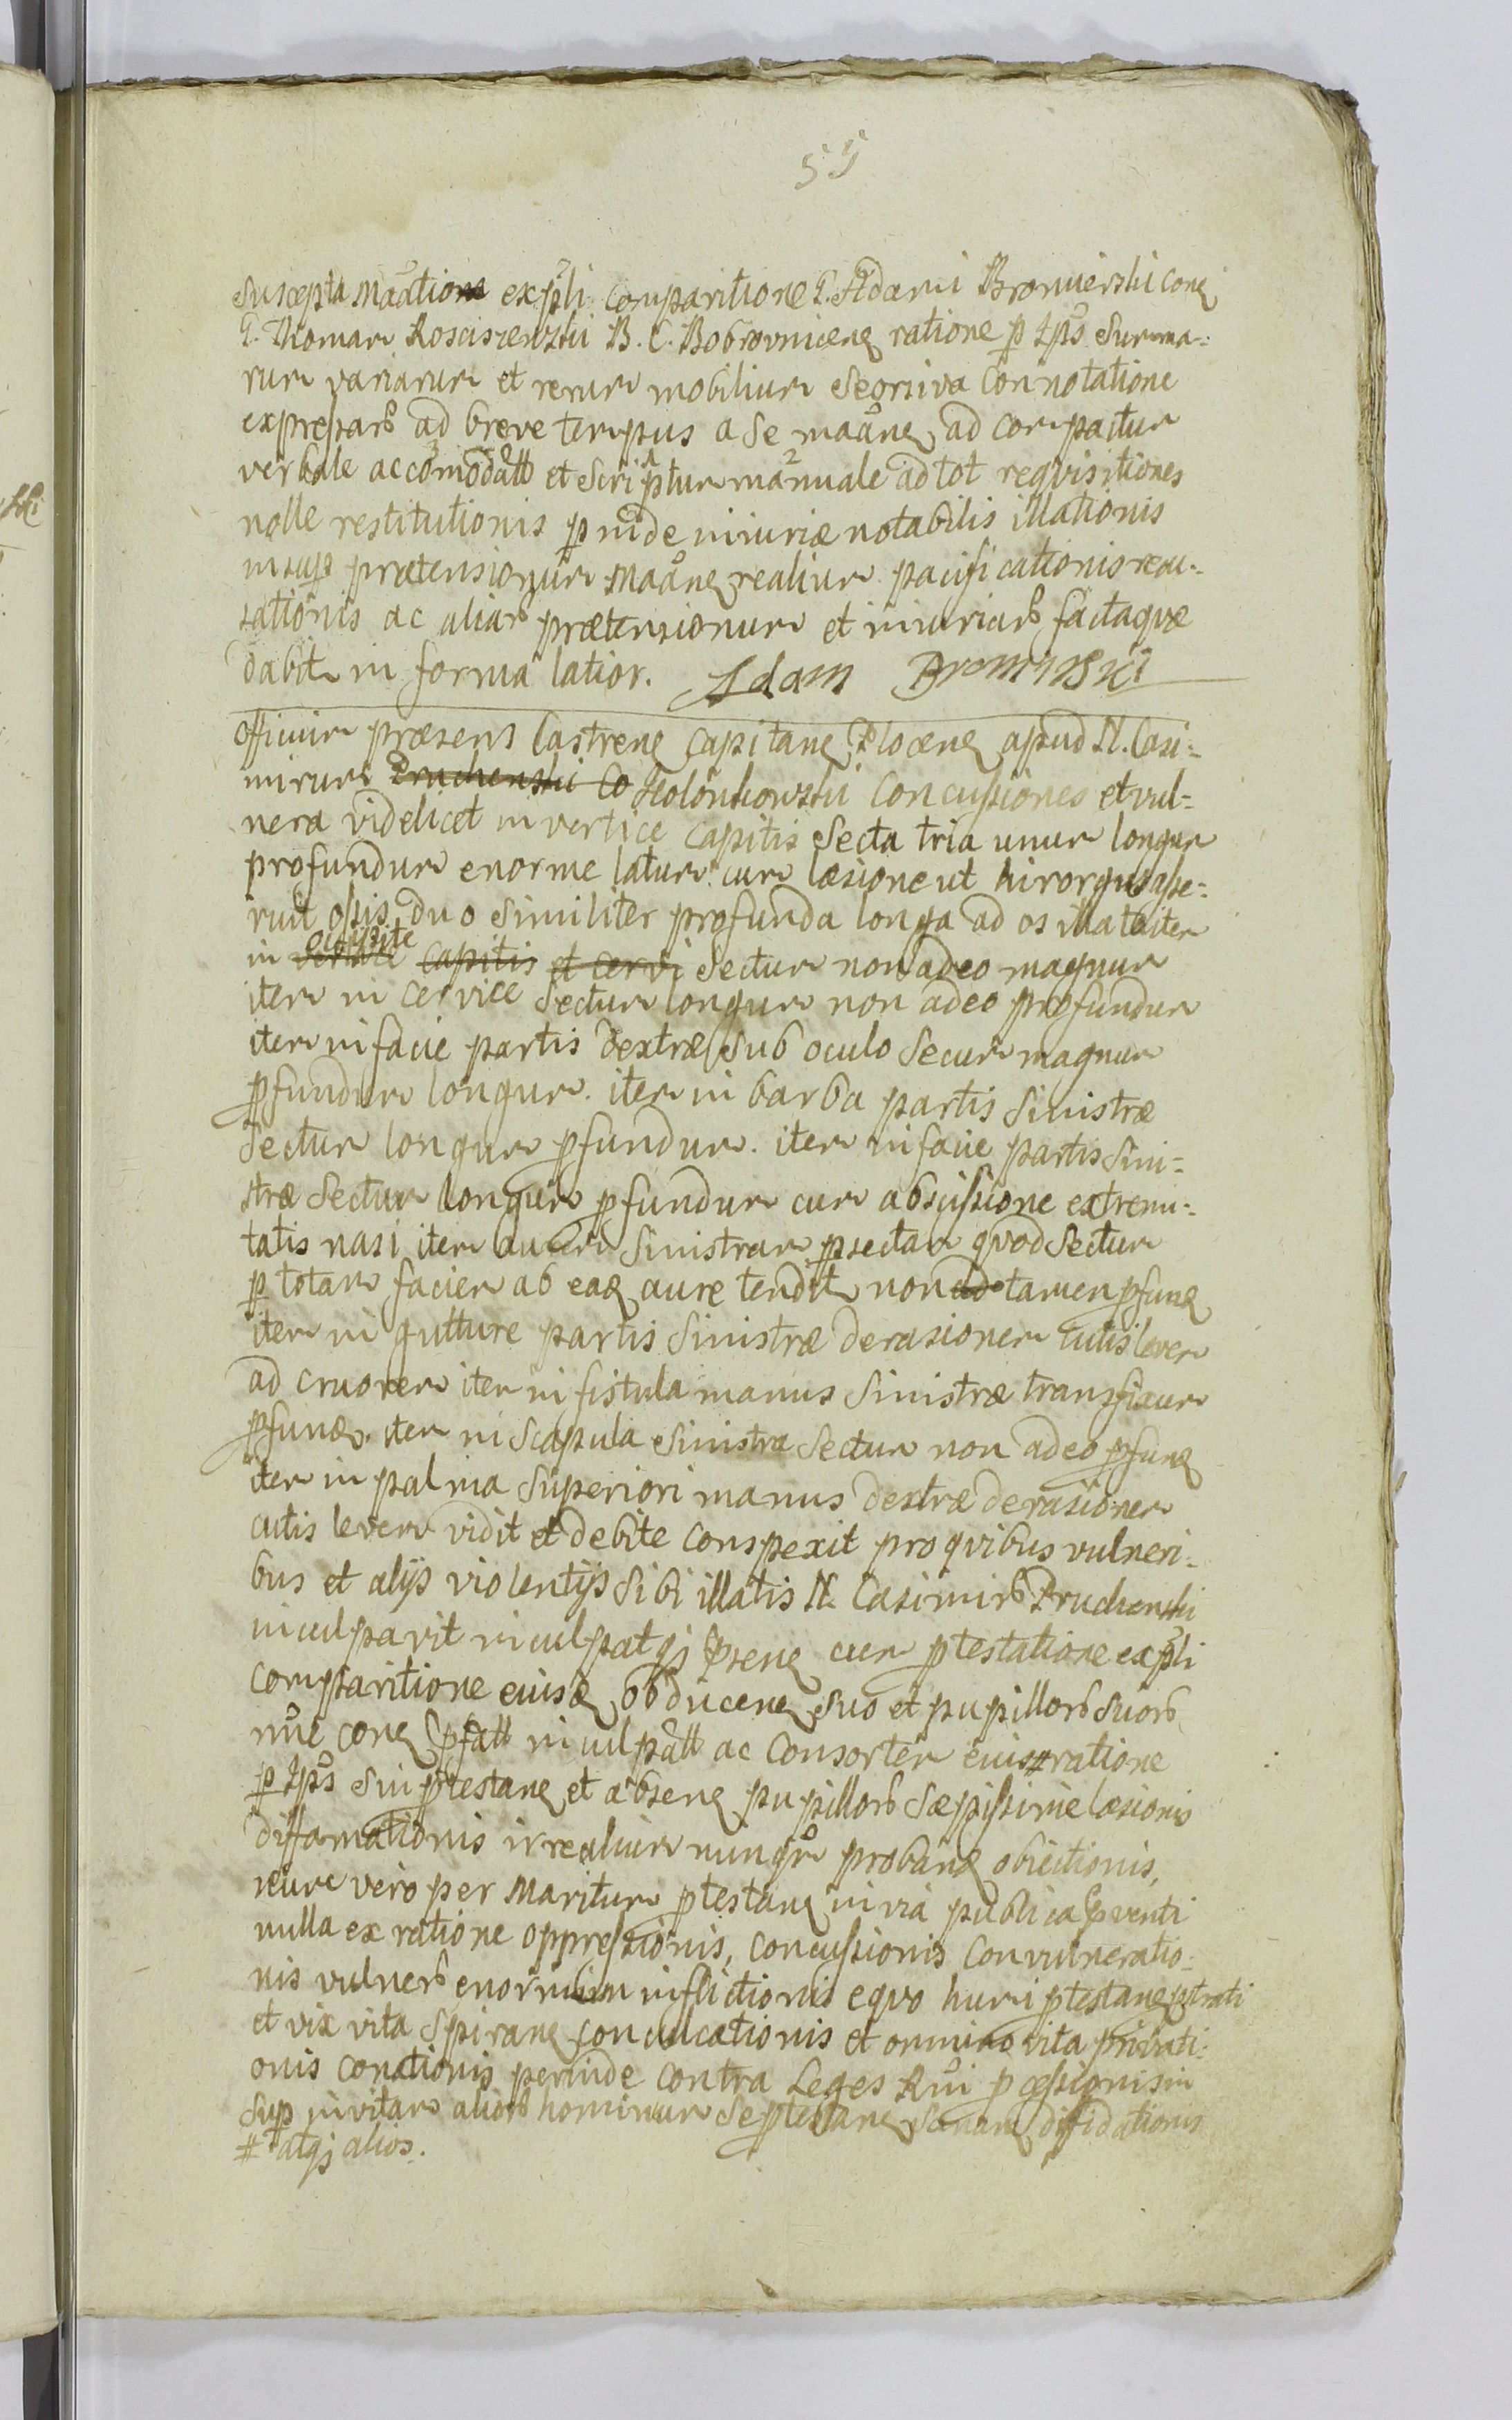 55
Suscepta Maãtione expłi comparitione G. Adami Bromierski con
G. Thomam Rosciszewski B. C. Bobrovnicen ratione p Ips Summa=
rum variarum et rerum mobilium Seorsiva connotatione
expressar ad breve tempus a Se maãn ad compactum
verbale accõmodatt et Scriptum mãnuale ad tot reqvisitiones
nolle restitutionis p inde iniuriæ notabilis illationis
insup prætensionum Maãn realium pacificationis recu=
sationis ac aliar prætensionum et iniuriar factaqvæ
dabit in forma latior. Adam Bromirski
Officium præsens Castren Capitan Plocen apud N. Casi=
mirum Pruchenski Co Holonkowski Concussiones et vul=
nera videlicet in vertice capitis Secta tria unum longum
profundum enorme latum cum læsione ut hirorgus asse=
ruit ossis, duo Similiter profunda longa ad os illata item
occipite
in vertice capitis et cervi Sectum non adeo magnum
item in cervice Sectum longum non adeo profundum
item in facie partis dextræ Sub oculo Secum magnum
pfundum longum. item in barba partis Sinistræ
Sectum longum pfundum. item in facie partis Sini=
stræ Sectum longum pfundum cum abscissione extremi=
tatis nasi item aurem Sinistram psectam qvod Sectum
p totam faciem ab ead aure tendit non ad tamen pfund
item in gutture partis Sinistræ derasionem cutis levem
ad cruorem item in fistula manus Sinistræ transfixum
pfund. item in Scapula Sinistra Sectum non adeo pfund
item in palma Superiori manus dextræ derasionem
cutis levem vidit et debite conspexit pro qvibus vulneri=
bus et alijs violentijs Sibi illatis N. Casimir Pruchenski
inculpavit inculpatqj psen cum ptestatione expłi
comparitione eiusd obducen Suo et pupillor Suor
nne con pfatt inculpatt ac Consortem eius # ratione
p Ips Sui ptestan et absen pupillor Sæpissime læsionis
diffamationis irrealium nunqm proband obiectionis,
reum vero per Maritum ptestan in via publica pventi
nulla ex ratione oppressionis, concussionis convulneratio=
nis vulner enormium inflictionis eqvo humi ptestan ptrati
et vix vita Spiran conculcationis et omnino vita privati=
onis conationis perinde contra Leges Rni pcessionis in
Sup in vitam alior hominum Se ptestan diffidationis
# atqj alios.